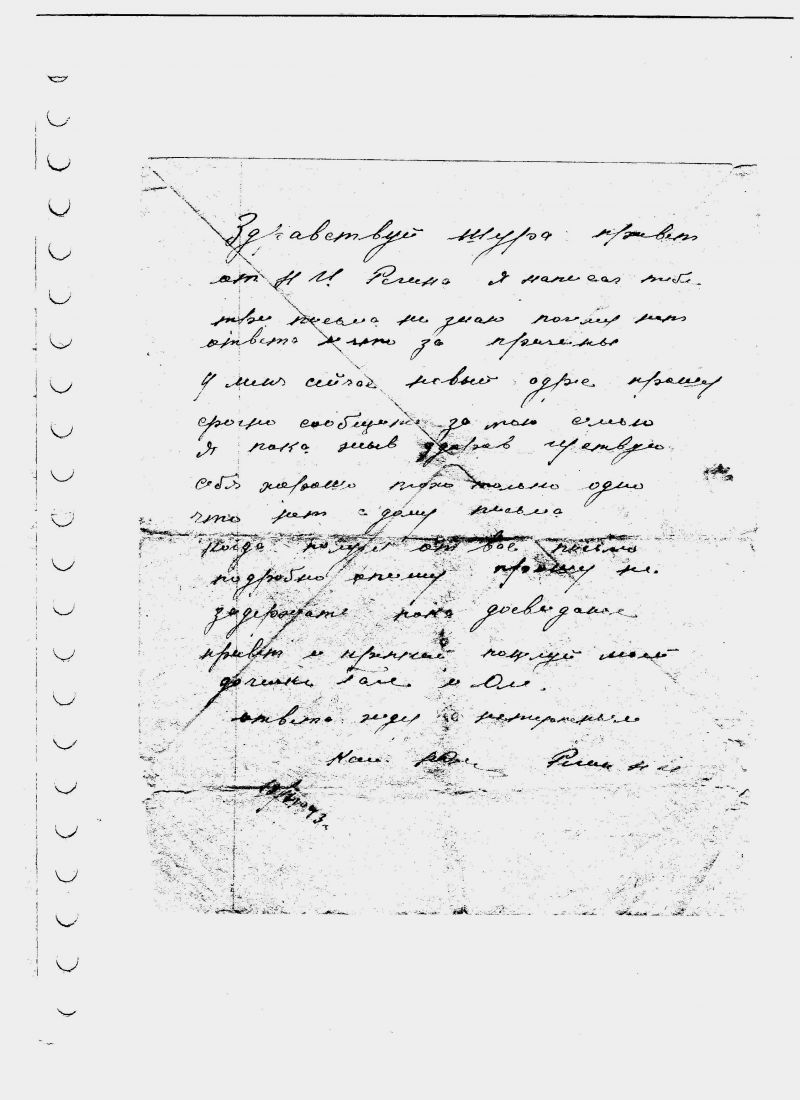 Здравствуй Шура привет
от Н И Регина Я написал тебе
три письма не знаю почему нет
ответа и что за причины
У миня сейчас новый адрес прошу
срочно сообщить за мою семью
Я пока жыв здоров чуствую
себя хорошо плохо только одно
что нет с дому письма
когда получу от вас письмо
подробно опишу прошу не
задержать пока досвидание
привет и крепкий поцелуй моей
дочьки Гале и Оле.
ответа жду с нетерпеньем
Регин Н И
43 г.